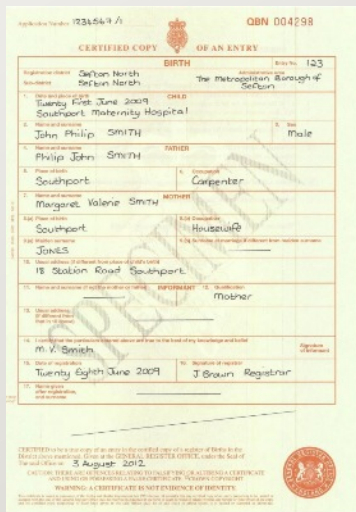 Application Number 1234567/1
QBN 004298
CERTIFIED COPY OF AN ENTRY
BIRTH
Entry No. 123
Registration district Sefton North
Administrative area
Sub-district Sefton North
The Metropolitan Borough of Sefton
CHILD
1. Date and place of birth
Twenty First June 2009
Southport Maternity Hospital
2. Name and surname
John Philip SMITH
3. Sex
Male
FATHER
4. Name and surname
Philip John SMITH
5. Place of birth
Southport
6. Occupation
Carpenter
MOTHER
7. Name and surname
Margaret Valerie SMITH
8.(a) Place of birth
Southport
8.(b) Occupation
Housewife
9.(a) Maiden surname
JONES
9.(b) Surname at marriage if different from maiden surname
10. Usual address (if different from place of child's birth)
18 Station Road Southport
INFORMANT
11. Name and surname (if not the mother or father)
12. Qualification
Mother
13. Usual address
(if different from that in 10 above)
14. I certify that the particulars entered above are true to the best of my knowledge and belief
M. V. Smith
Signature of informant
15. Date of registration
Twenty Eighth June 2009
16. Signature of registrar
J Brown Registrar
17. Name given after registration, and surname
SPECIMEN
CERTIFIED to be a true copy of an entry in the certified copy of a register of Births in the
District above mentioned. Given at the GENERAL REGISTER OFFICE, under the Seal of
the said Office on 3 August 2012
WARNING: A CERTIFICATE IS NOT EVIDENCE OF IDENTITY.